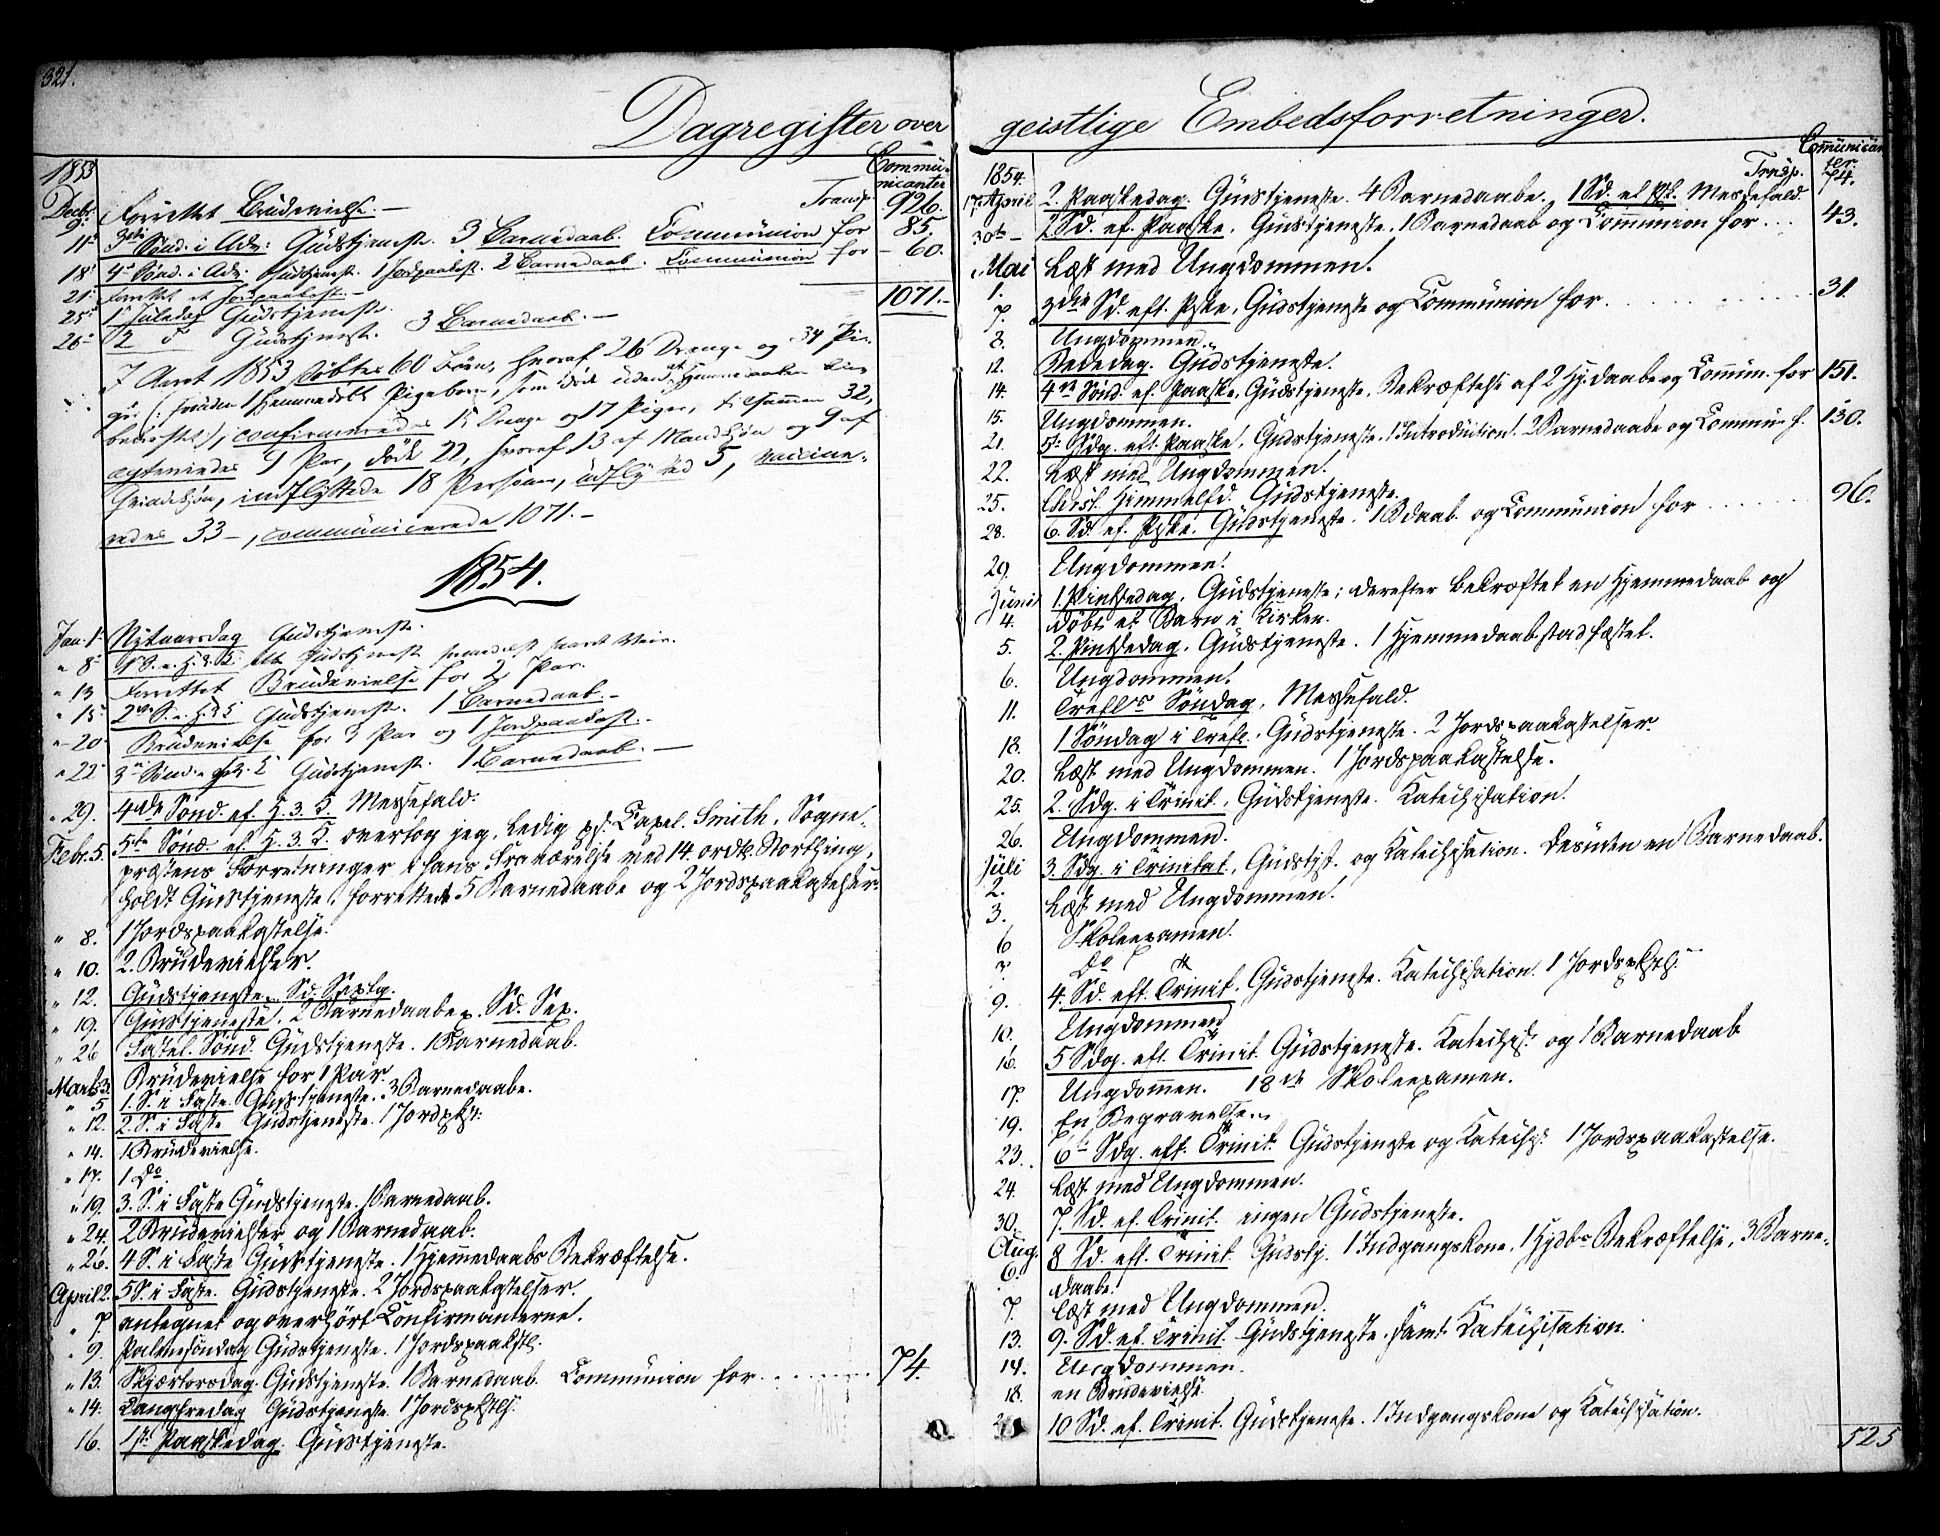 321.
Dagregister over
1853
Commünicanter
Decbr.
Transp. 926.
9. Forrettet Brudevielse. —
11. 3die Sønd. i Adv: Gudstjeneste. 3 Barnedaab. Communion for 85.
18. 4de Sønd. i Adv. Gudstjenst. 1 Jordpaakast. 2 Barnedaab. Communion for — 60.
21. Forrettet et Jordpaakast. — 1071.—
25. 1ste Juledag Gudstjenste.
26. 2 Gudstjenste. 3 Barnedaab. —
I Aaret 1853 døbtes 60 Børn, hvoraf 26 Drenge og 34 Pi-
ger (: foruden 1 Hjemmedøbt Pigebarn, som døde uden at Hjemmedaaben blev
bekræftet), confirmeredes 15 Drenge og 17 Piger, tilsammen 32,
egteviedes 9 Par, døde 22, hvoraf 13 af Mandkjøn og 9 af
Qvindekjøn, indflyttede 18 Personer, udflyttede 5, vaccine-
redes 33 —, communicerede 1071. —
1854.
Jan. 1. Nytaarsdag Gudstjenste.
" 8. 1 S. e. H. 3 K. Gudstjenst Veir.
" 13 Forrettet Brudevielse for 2 Par.
" 15 2den S. e. H. 3 K Gudstjenst. 1 Barnedaab. —
" 20 Brudevielse for 1 Par og 1 Jordpaakast. —
" 22 3die Sønd. e. H. 3 K Gudstjenst. 1 Barnedaab. —
" 29. 4de Sønd. ef. H. 3. K. Messefald.
Febr. 5. 5te Sønd. ef. H. 3. K. overtog jeg, Ledig ps. Capel. Smith, Sogne-
præstens Forretninger i hans Fraværelse ved 14. ordtl. Storthing,
holdt Gudstjeneste, forrettede 5 Barnedaabe og 2 Jordspaakastelser.
" 8. 1 Jordspaakastelse.
" 10. 2. Brudevielser.
" 12. Gudstjeneste. Sd. Septg.
" 19. Gudstjeneste. 2 Barnedaabe. Sd. Sex.
" 26 Fastel. Sønd. Gudstjeneste. 1 Barnedaab.
Marts 3. Brudevielse for 1 Par.
" 5 1. S. i Faste. Gudstjeneste. 3 Barnedaabe.
" 12. 2. S. i Faste Gudstjeneste. 1 Jordpkst.
" 14. 1 Brudevielse.
" 17. 1 Do.
" 19. 3. S. i Faste Gudstjeneste. 1 Barnedaab.
" 24. 2 Brudevielser og 1 Barnedaab.
" 26. 4 S. i Faste Gudstjeneste. 1 Hjemmedaabs Bekræftelse.
April 2. 5 S. i Faste. Gudstjeneste. 2 Jordspaakastelser.
" 7. antegnet og overhørt Confirmanterne.
" 9. Palmesøndag Gudstjeneste. 1 Jordspaakstl.
" 13. Skjærtorsdag. Gudstjeneste. 1 Barnedaab. Communion for. . . . . . . 74.
" 14. Langfredag Gudstjeneste. 1 Jordspkstls.
16. 1ste Paaskedag. Gudstjeneste.
geistlige Embedsforretninger.
1854.
Comünicanter.
Trnsp. 74.
17. April 2. Paaskedag. Gudstjeneste. 4 Barnedaabe. 1 Sd. ef. Psk. Messefald.
30te — 2 Sd. ef. Paaske. Gudstjeneste. 1 Barnedaab og Communion for . . . 43.
Mai 1. Læst med Ungdommen.
7. 3die Sd. eft. Pske. Gudstjeneste og Communion for . . . . . . . . . 31.
8. Ungdommen.
12. Bededag. Gudstjeneste.
14. 4de Sønd. ef. Paaske. Gudstjeneste. Bekræftelse af 2 Hj.daabe og Commun. for 151.
15. Ungdommen.
21. 5te Sdg. eft. Paaske. Gudstjeneste. 1 Introduction. 2 Barnedaabe og Commun. f. 130.
22. Læst med Ungdommen.
25. Christ. Himmelfd. Gudstjeneste.
28. 6. Sd. ef. Pske. Gudstjeneste. 1 Bdaab. og Communion for . . . . . 96.
29. Ungdommen.
Juni 4. 1. Pintsedag. Gudstjeneste; derefter bekræftet en Hjemmedaab og
døbt et Barn i Kirken.
5. 2. Pintsedag. Gudstjeneste. 1 Hjemmedaab stadfæstet.
6. Ungdommen.
11. Trefl. Søndag. Messefald.
18. 1 Søndag i Trefl. Gudstjeneste. 2 Jordspaakastelser.
20. Læst med Ungdommen. 1 Jordspaakastelse.
25. 2. Sdg. i Trinit. Gudstjeneste. Katechisation.
26. Ungdommen.
Juli 2. 3. Sdg. i Trinitat. Gudstjst. og Katechisation. Desuden en Barnedaab.
3. Læst med Ungdommen.
6 Skoleexamen.
7. Do
9. 4. Sd. eft. Trinit. Gudstjeneste. Katechisation. 1 Jordspkstls.
10. Ungdommen
16. 5 Sdg. eft. Trinit. Gudstjeneste. Katechis. og 1 Barnedaab
17. Ungdommen. 18de Skoleexamen.
19. En Begravelse.
23. 6te Sdg. eft. Trinit. Gudstjeneste og Katechs. 1 Jordspaakastelse.
24. Læst med Ungdommen.
30. 7. Sd. ef. Trinit. ingen Gudstjeneste.
Aug. 6. 8 Sd. eft. Trinit. Gudstj. 1 Indgangskone. 1 Hjdbs Bekræftelse, 3 Barne-
daabe.
7. Læst med Ungdommen.
13. 9. Sd. ef. Trinit. Gudstjeneste samt Katechisation.
14. Ungdommen.
18. en Brudevielse
10 Sd. ef. Trinit. Gudstjeneste. 1 Indgangskone og Katechisation.
525